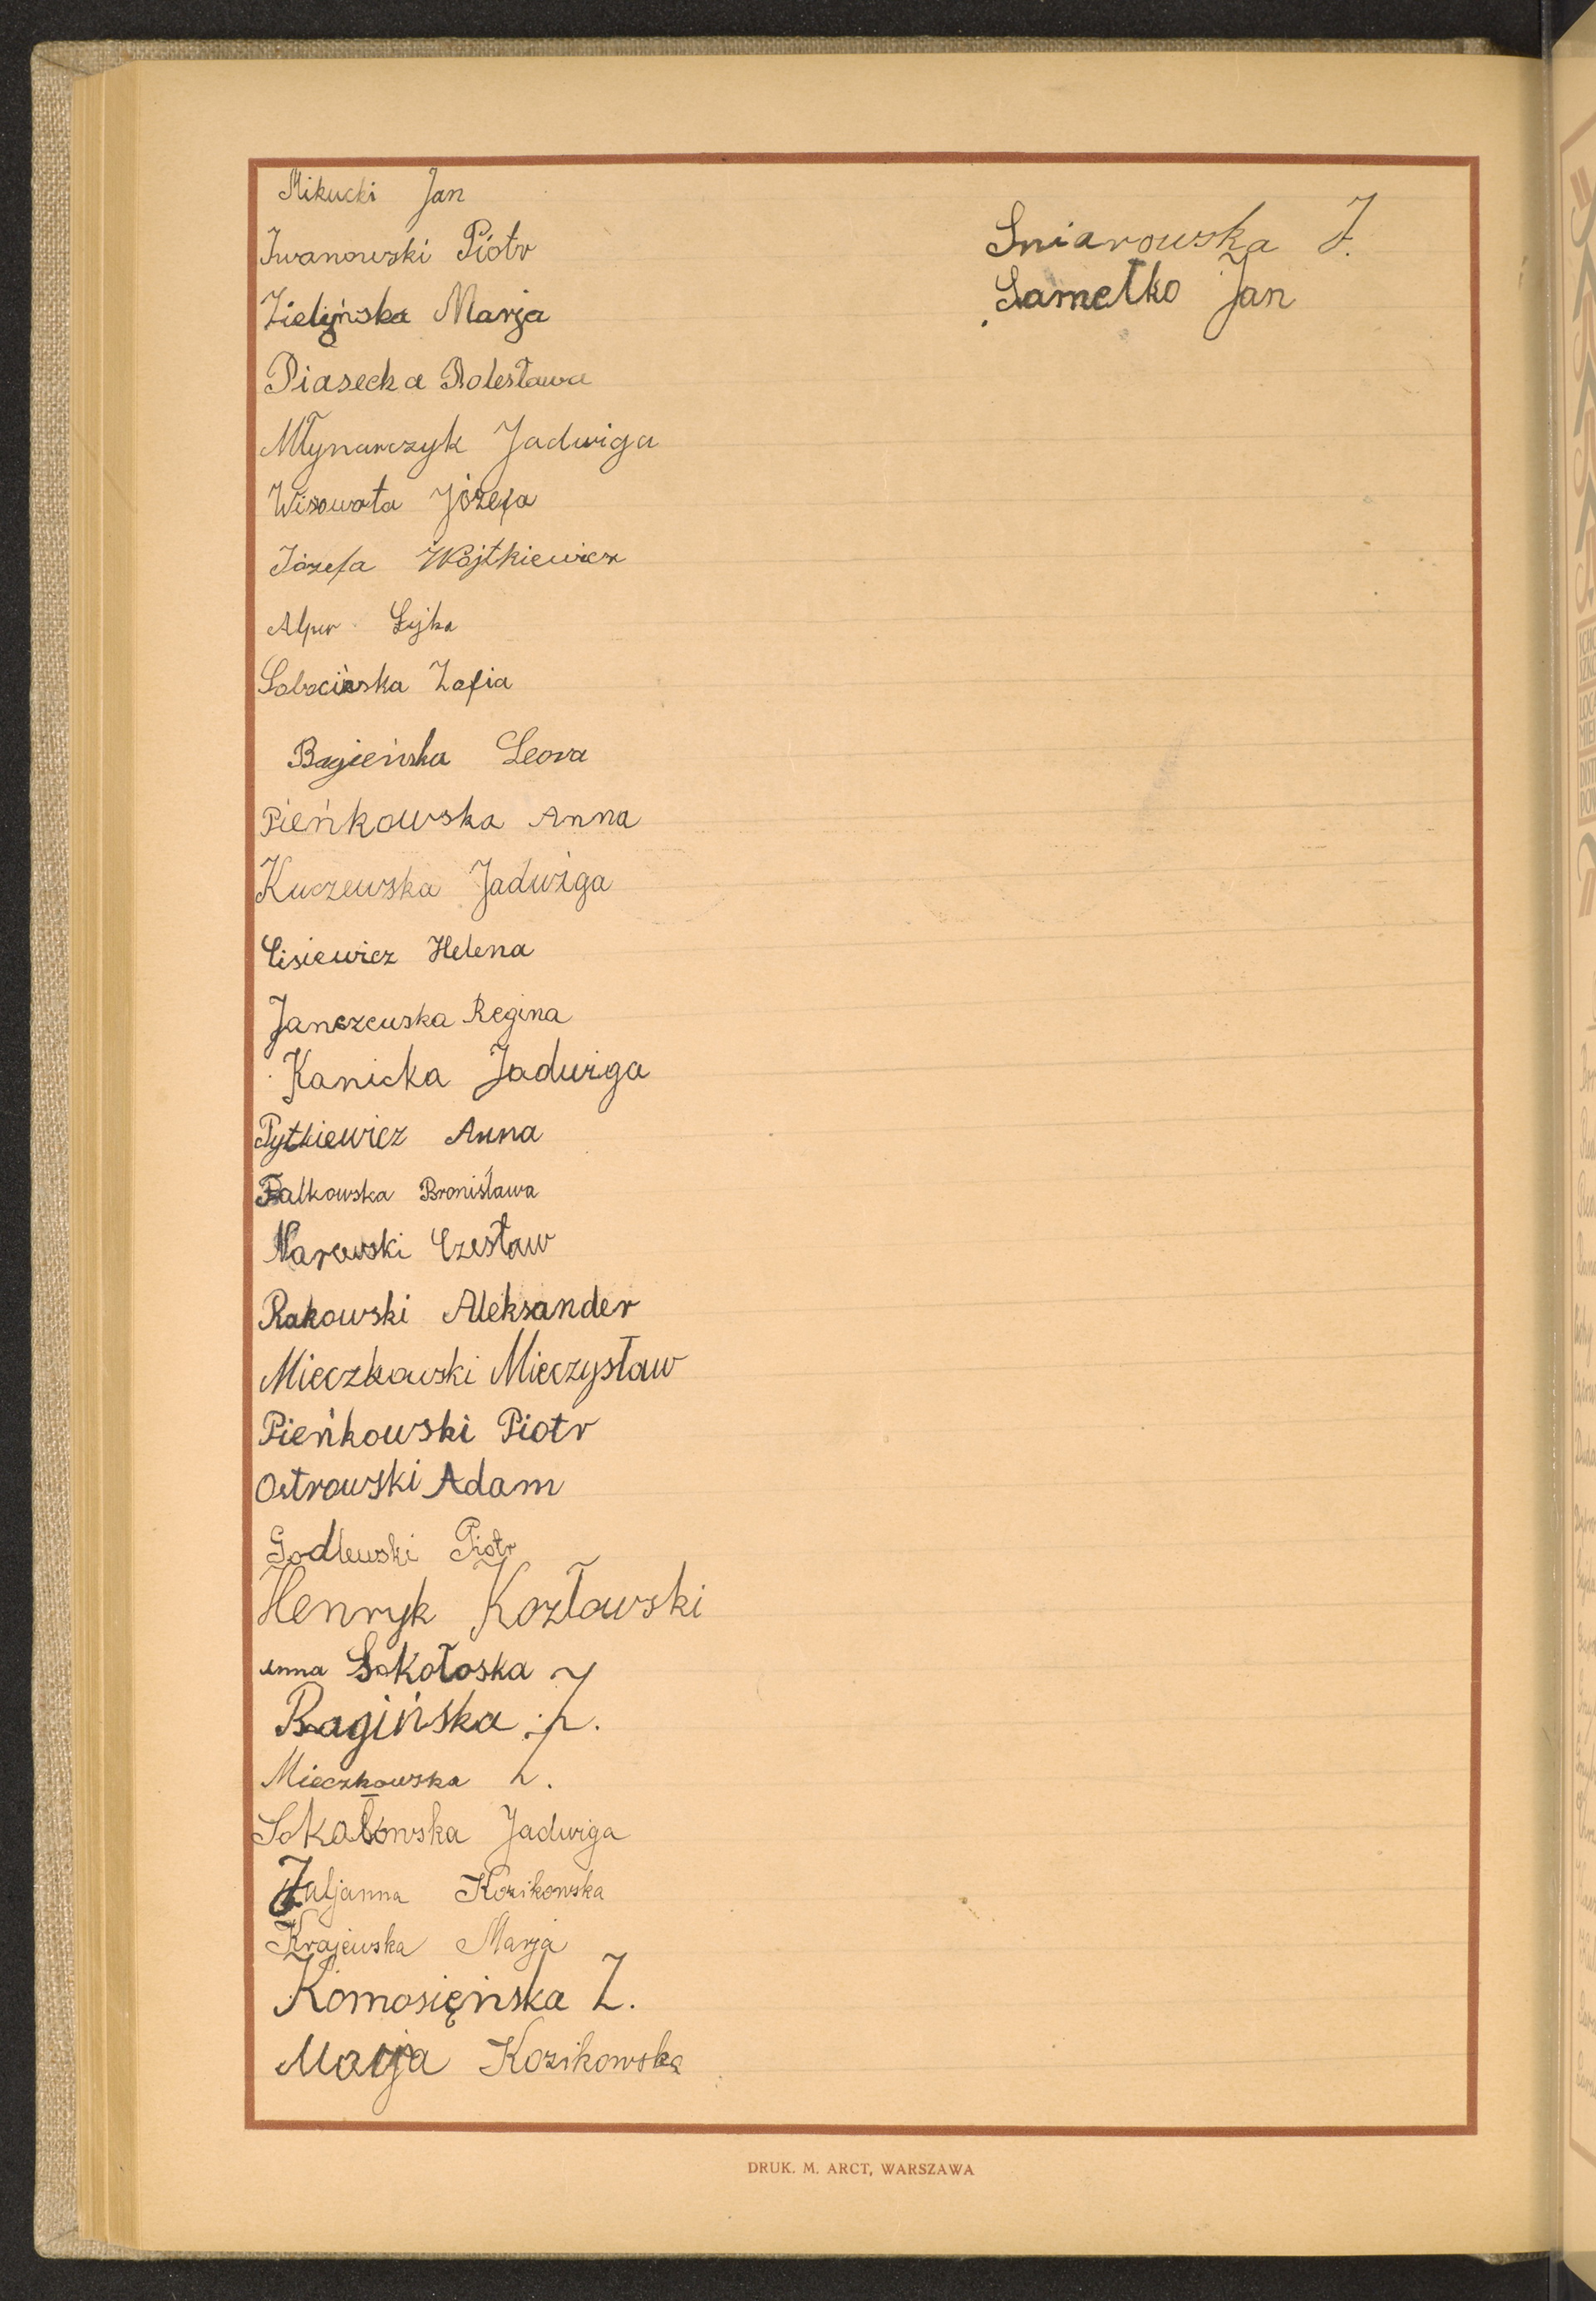 Mikucki Jan
Iwanowski Piotr
Zielińska Marja
Piasecka Bolesława
Młynarczyk Jadwiga
Wisowata Józefa
Józefa Wojtkiewicz
Alper Łejka
Sobocińska Zofia
Bagieńska Leona
Pieńkowska Anna
Kuczewska Jadwiga
Cisiewicz Helena
Janczewska Regina
Kanicka Jadwiga
Pytkiewicz Anna
Falkowska Bronisława
Narewski Czesław
Rakowski Aleksander
Mieczkowski Mieczysław
Pieńkowski Piotr
Ostrowski Adam
Godlewski Piotr
Henryk Kozłowski
Anna Sokołoska
Bagińska Z.
Mieczkowska L.
Sokołowska Jadwiga
Juljanna Kozikowska
Krajewska Marja
Komosięńska Z.
Marja Kozikowska
Sniarowska J.
Sametko Jan
DRUK. M. ARCT, WARSZAWA